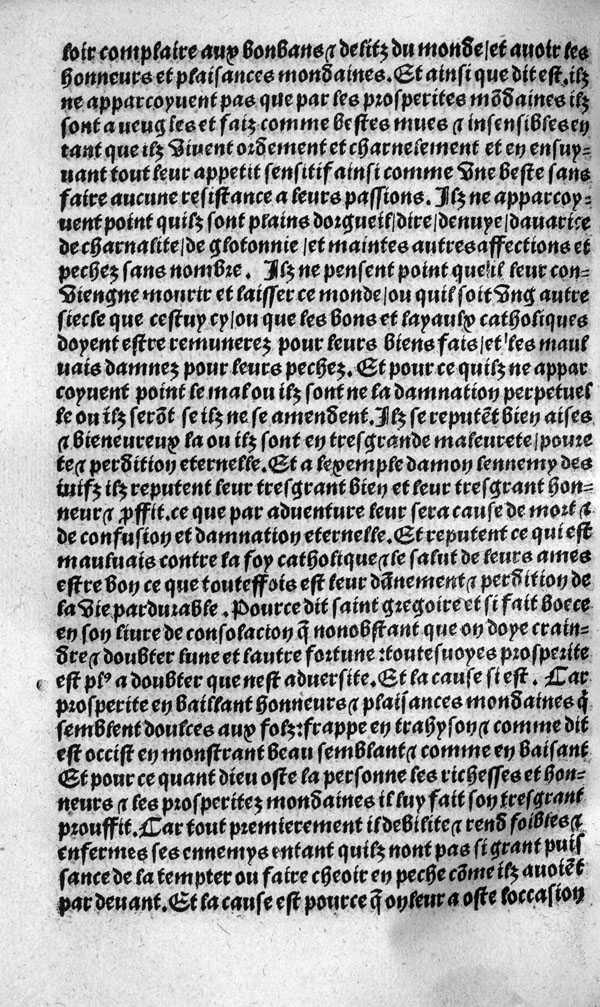 loir complaire aux bonbans ⁊ delitz du monde/et auoir les
honneurs et plaisances mondaines. Et ainsi que dit est, ilz
ne apparcoyuent pas que par les prosperites mõdaines ilz
sont aueugles et faiz comme bestes mues ⁊ insensibles en
tant que ilz viuent ordement et charnelement et en ensuy-
uant tout leur appetit sensitif ainsi comme vne beste sans
faire aucune resistance a leurs passions. Ilz ne apparcoy-
uent point quilz sont plains dorgueil/dire/denuye/dauarice
de charnalite/de glotonnie/et maintes autres affections et
pechez sans nombre. Ilz ne pensent point que il leur con-
viengne mourir et laisser ce monde/ou quil soit vng autre
siecle que cestuy cy/ou que les bons et layaulx catholiques
doyent estre remunerez pour leurs biens fais/et les maul
uais damnez pour leurs pechez. Et pour ce quilz ne appar
coyuent point le mal ou ilz sont ne la damnation perpetuel
le ou ilz serõt se ilz ne se amendent. Ilz se reputẽt bien aises
⁊ bieneureux la ou ilz sont en tresgrande maleurete/poure
te ⁊ perdition eternelle. Et a lexemple damon lennemy des
iuifz ilz reputent leur tresgrant bien et leur tresgrant hon-
neur ⁊ ꝓffit. ce que par aduenture leur sera cause de mort ⁊
de confusion et damnation eternelle. Et reputent ce qui est
mauluais contre la foy catholique ⁊ le salut de leurs ames
estre bon ce que touteffois est leur dãnement ⁊ perdition de
la vie pardurable. Pource dit saint gregoire et si fait boece
en son liure de consolacion q̃ nonobstant que on doye crain-
dre ⁊ doubter lune et lautre fortune: toutesuoyes prosperite
est plꝰ a doubter que nest aduersite. Et la cause si est. Car
prosperite en baillant honneurs ⁊ plaisances mondaines q̃
semblent doulces aux folz: frappe en trahyson ⁊ comme dit
est occist en monstrant beau semblant ⁊ comme en baisant
Et pour ce quant dieu oste la personne les richesses et hon-
neurs ⁊ les prosperitez mondaines il luy fait son tresgrant
prouffit. Car tout premierement il debilite ⁊ rend foibles ⁊
enfermes ses ennemys entant quilz nont pas si grant puis
sance de la tempter ou faire cheoir en peche cõme ilz auoiẽt
par deuant. Et la cause est pource q̃ on leur a oste loccasion